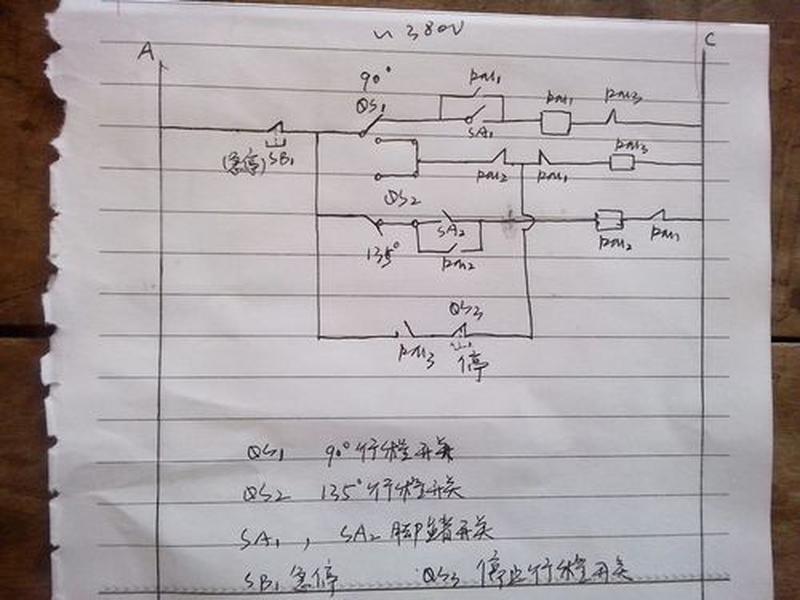 ~ 380V
A
C
90°
QS1
KM1
SA1
KM1
KM3
(急停) SB1
KM2
KM1
KM3
QS2
135°
SA2
KM2
KM2
KM1
QS3
KM3
停
QS1 90°行程开关
QS2 135°行程开关
SA1, SA2 脚踏开关
SB1 急停 QS3 停止行程开关